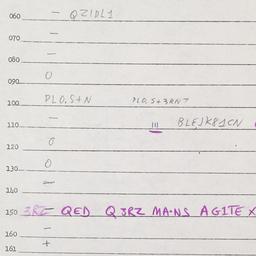 060 — QZIDL1
070 —
080 —
090 O
100 PLO.S+N PLO.S+3RN7
110 — III BLEJK81CN
120 O
130 O
140 —
150 3RZ QED QJRZ MA-NS AG1TE X
160 —
161 +